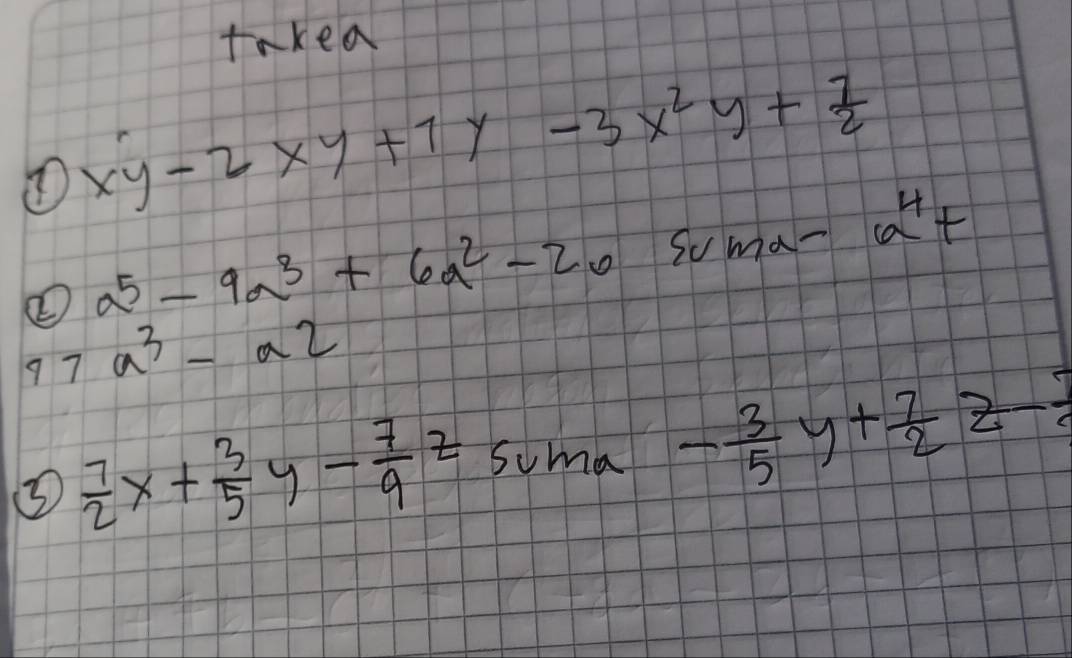 tarea
① xy - 2xy + 1y - 3x²y + 7/2
② a⁵ - 9a³ + 6a² - 20 suma - a⁴ +
97a³ - a2
③ 7/2x + 3/5y - 7/9z suma - 3/5y + 7/2z -